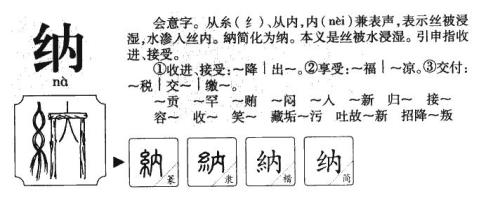 纳
nà
会意字。从糸(纟)、从内,内(nèi)兼表声,表示丝被浸
湿,水渗入丝内。納简化为纳。本义是丝被水浸湿。引申指收
进、接受。
①收进、接受:~降|出~。②享受:~福|~凉。③交付:
~税|交~|缴~。
~贡 ~罕 ~贿 ~闷 ~人 ~新 归~ 接~
容~ 收~ 笑~ 藏垢~污 吐故~新 招降~叛
納 篆
納 隶
納 楷
纳 简